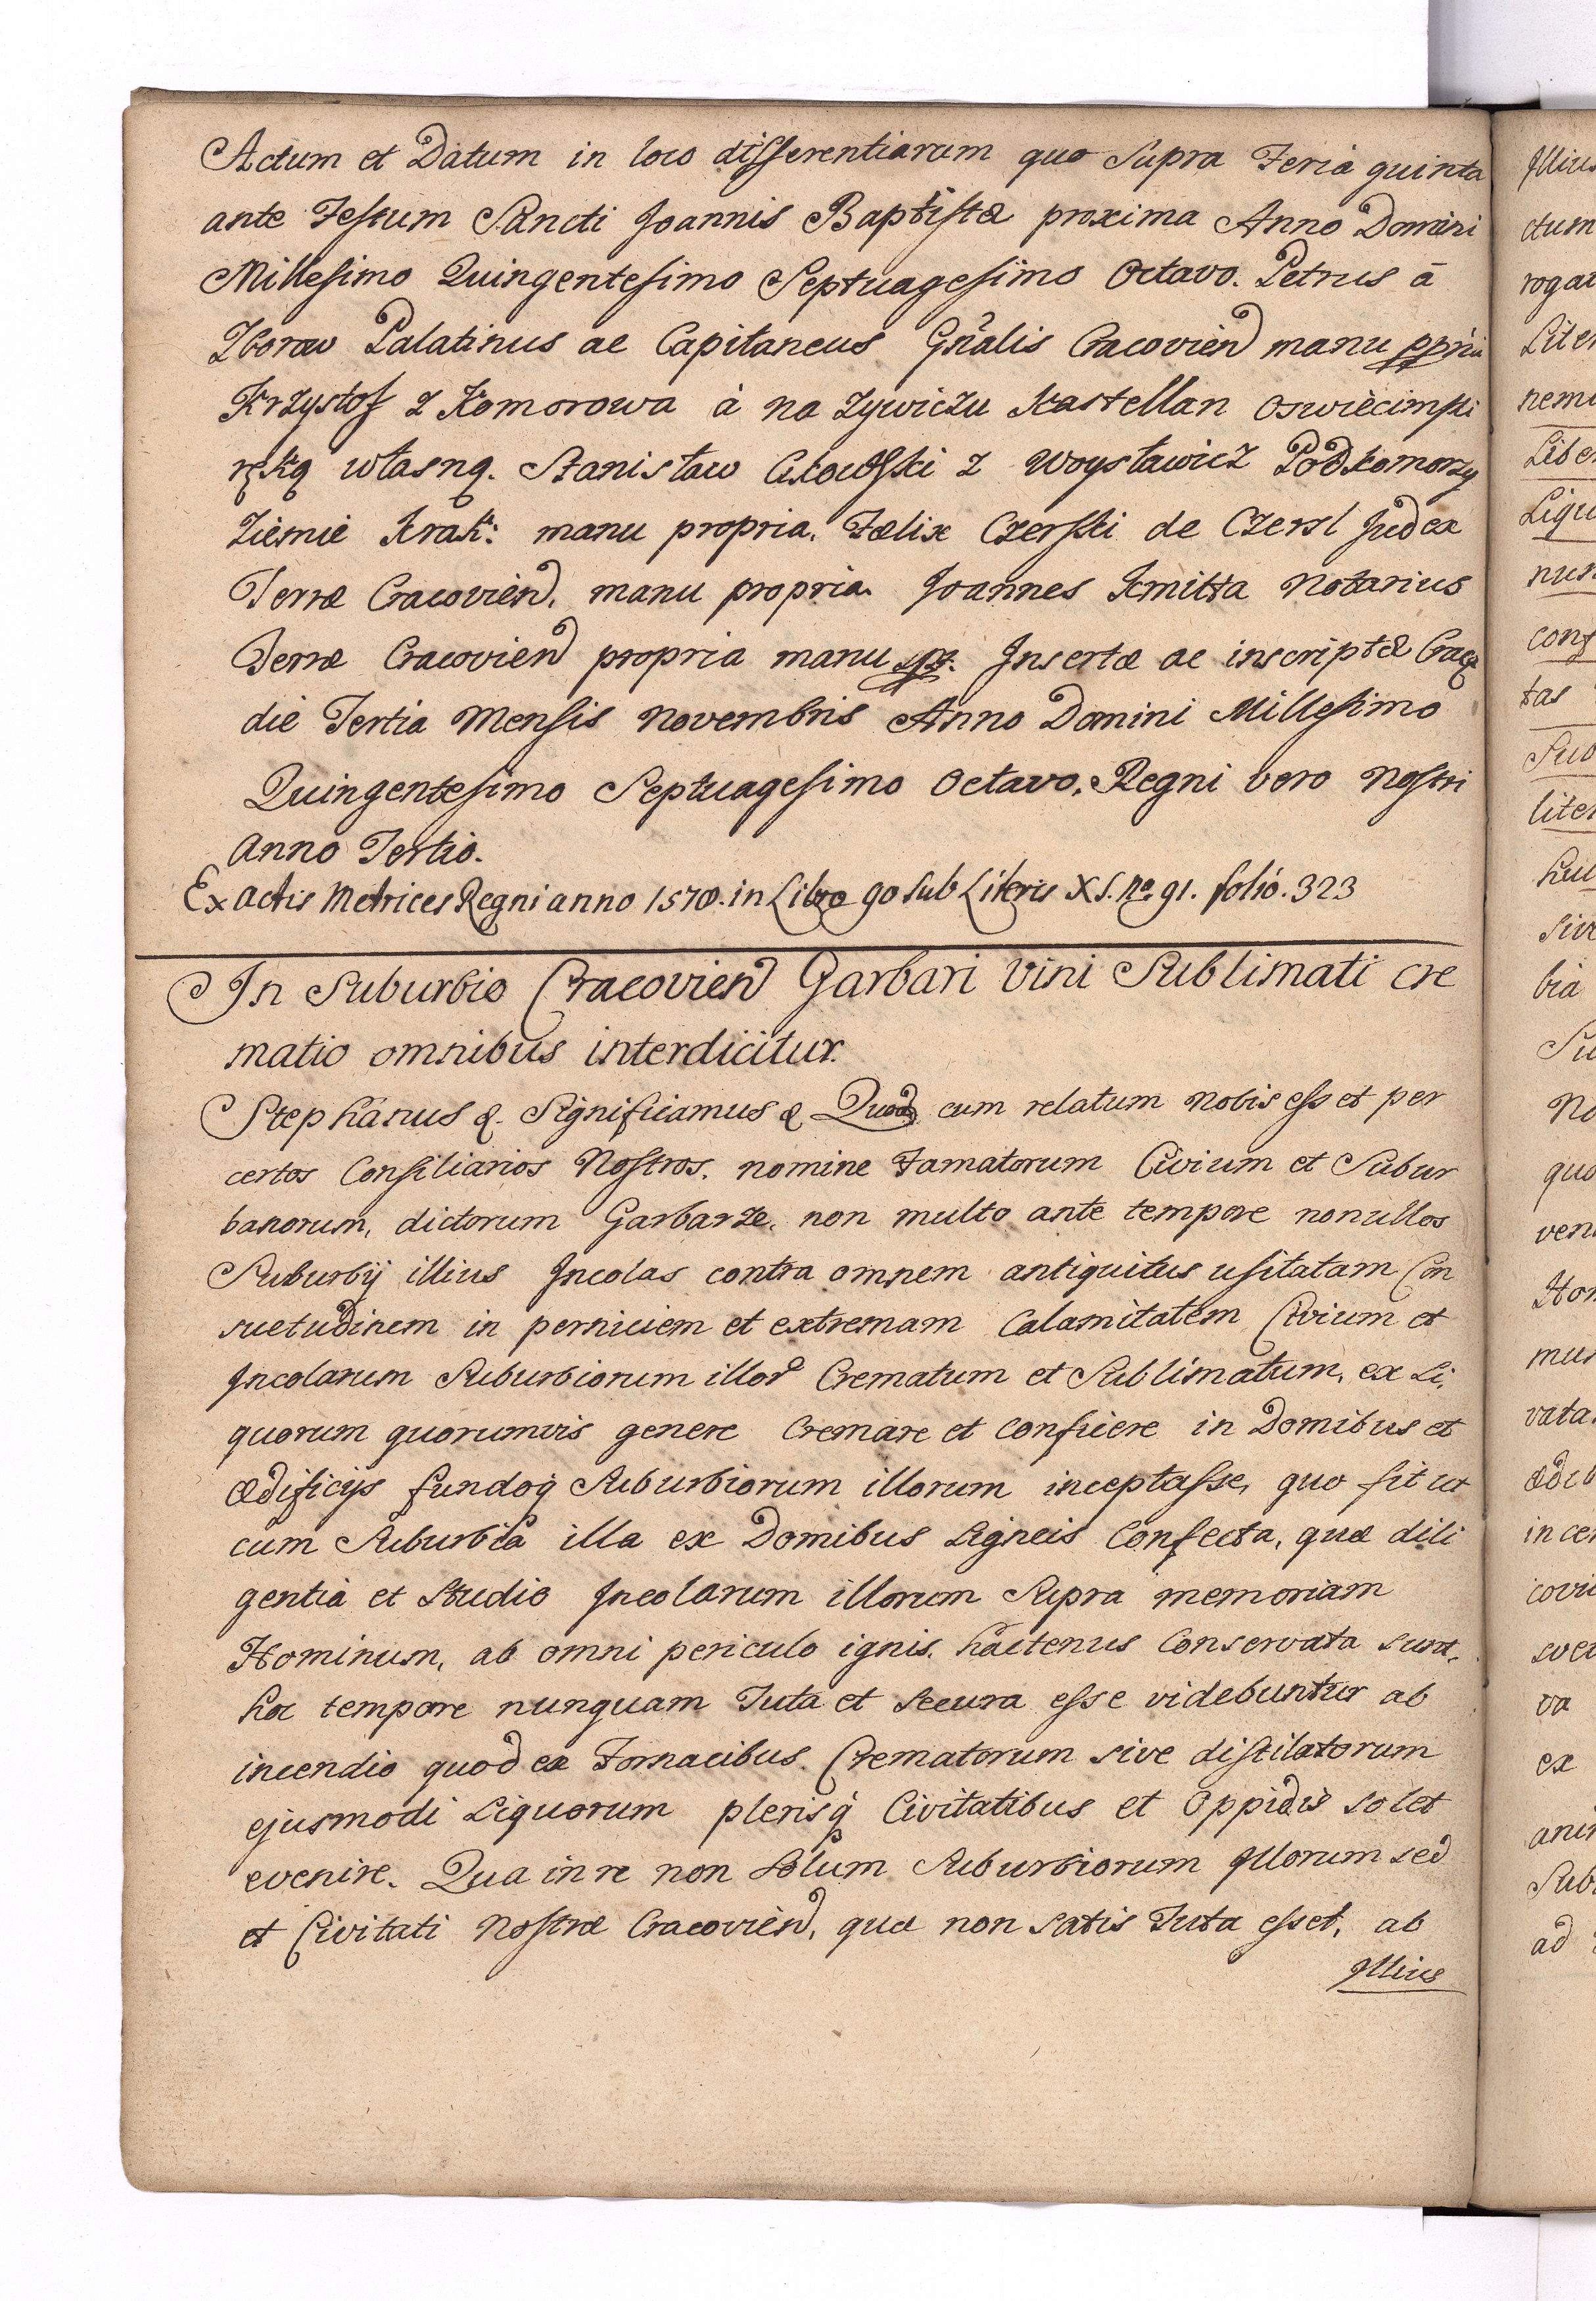 Actum et Datum in loco differentiarum quo Supra Feria quinta
ante Festum Sancti Joannis Baptistæ proxima Anno Domini
Millesimo Quingentesimo Septuagesimo Octavo. Petrus à
Zborow Palatinus ac Capitaneus Gn̄alis Cracovien manu ppria
Krzysztof z Komorowa à na Zywiczu Kastellan Oswiècimski
ręką własną. Stanisław z Woysławicz Podkomorzy
Ziemie Krak: manu propria. Fælix Czerski de Czersl Judex
Terræ Cracovien. manu propria. Joannes Kmitta Notarius
Terræ Cracovien propria manu Insertæ ac inscriptæ Crac
die Tertia Mensis Novembris Anno Domini Millesimo
Quingentesimo Septuagesimo Octavo. Regni vero Nostri
Anno Tertio.
Ex actis Metrices Regni anno 1578. in Libro 90 sub Literis XS. No 91. folio. 323
In Suburbio Cracovien Garbari Vini Sublimati cre
matio omnibus interdicitur.
Stephanus &. Significamus & Quod cum relatum Nobis esset per
certos Consiliarios Nostros. nomine Famatorum Civium et Subur
banorum, dictorum Garbarze. non multo ante tempore nonullos
Suburbij illius Incolas contra omnem antiquitus usitatam Con
suetudinem in perniciem et extremam Calamitatem Civium et
Incolarum Suburbiorum illor Crematum et Sublimatum, ex Li,
quorum quorumvis genere Cremare et conficere in Domibus et
ædificijs fundoq Suburbiorum illorum inceptasse, quo fit ut
cum Suburbia illa ex Domibus Ligneis Confecta, quæ dili
gentia et Studio Incolarum illorum Supra memoriam
Hominum, ab omni periculo ignis. hactenus Conservata sunt.
hoc tempore nunquam Tuta et Secura esse videbuntur ab
incendio quod ex Fornacibus. Crematorum sive distilatorum
ejusmodi Liquorum plerisq Civitatibus et Oppidis solet
evenire. Qua in re non Solum Suburbiorum Illorum sed
et Civitati Nostræ Cracovien, quæ non satis Tuta esset, ab
Illius
Illius
ctum
roga
Liter
nem
Liber
Liqu
nun
cons
tas
Sub
liter
hu
Sive
bia
Su
No
quo
ven
Hom
mus
vata
ædib
in cen
covi
va
ex
anim
Sub
ad